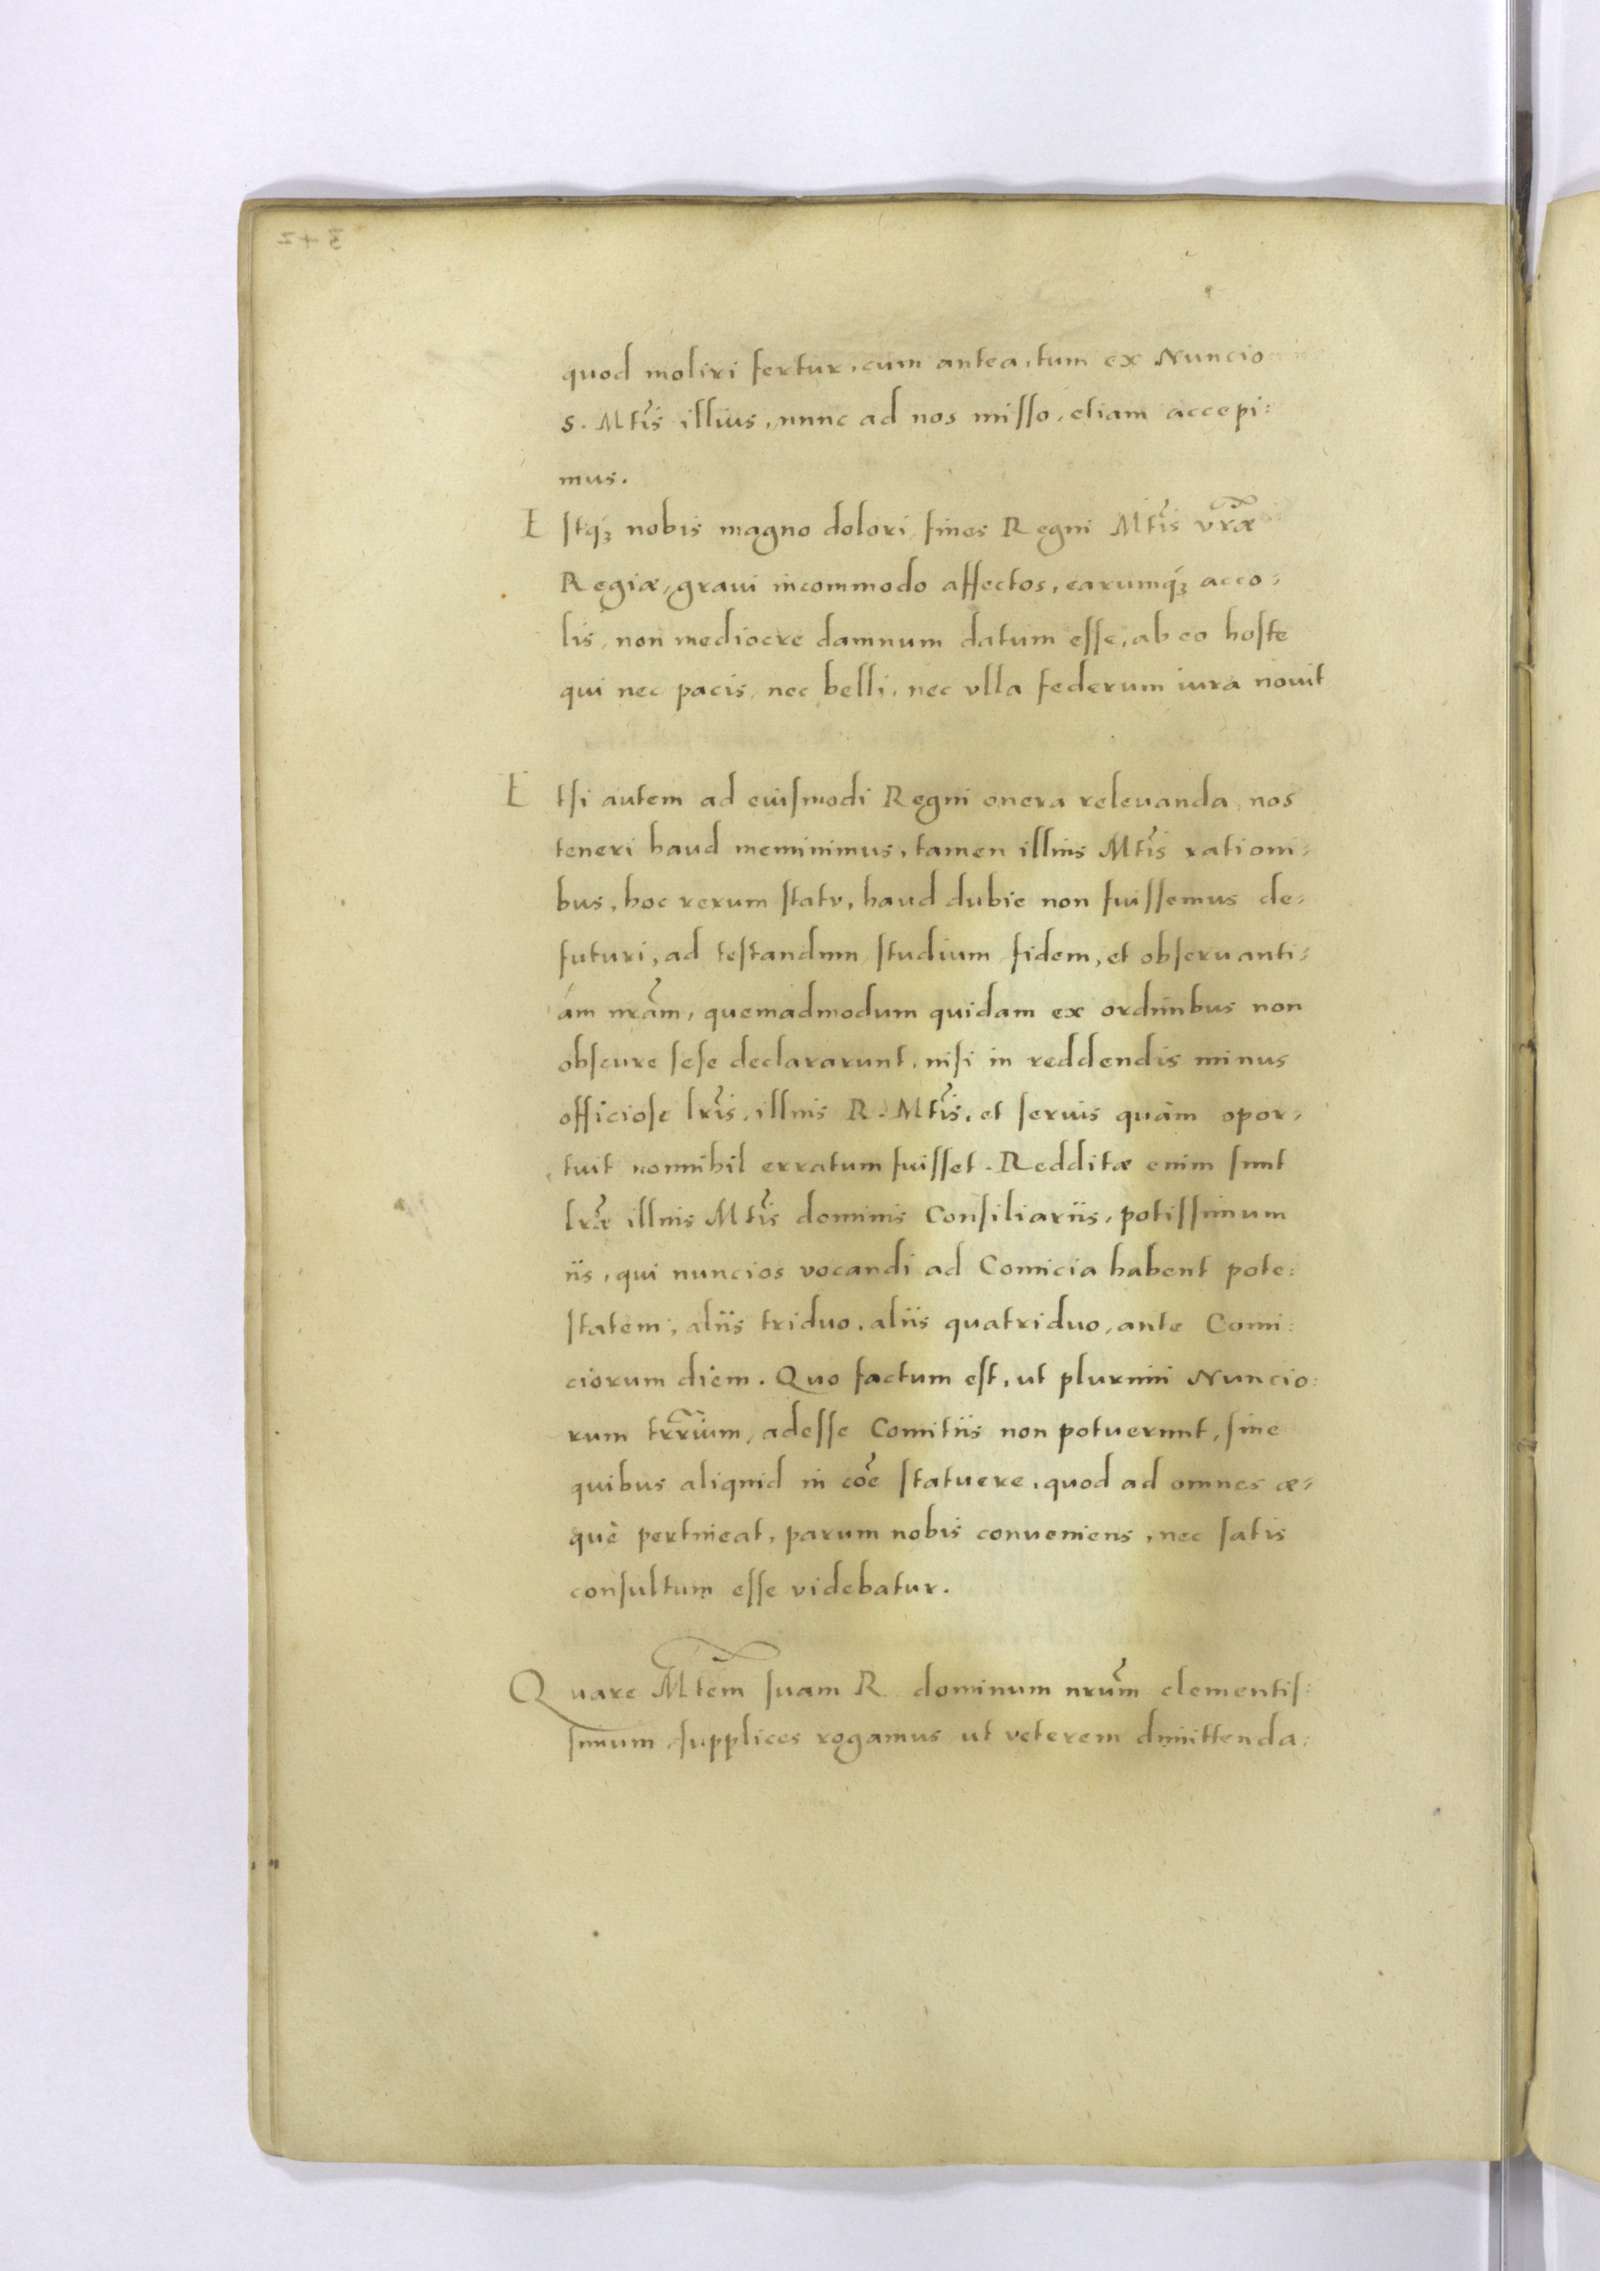 quod moliri fertur, cum antea, tum ex Nuncio
S. Mtis illius, nunc ad nos misso, etiam accepi:
mus.
Estq₃ nobis magno dolori, fines Regni Mtis vrae
Regiae, graui incommodo affectos, earumq₃ acco-
lis, non mediocre damnum datum esse, ab eo hoste
qui nec pacis, nec belli, nec vlla federum iura nouit
Etsi autem ad eiusmodi Regni onera releuanda, nos
teneri haud meminimus, tamen illius Mtis rationi-
bus, hoc rerum statu, haud dubie non fuissemus de-
futuri, ad testandum studium fidem, et obseruanti-
am nram, quemadmodum quidam ex ordinibus non
obscure sese declararunt, nisi in reddendis minus
officiose lris, illius R. Mtis, et serius quàm opor-
tuit nonnihil erratum fuisset. Redditae enim sunt
lrae illius Mtis dominis Consiliariis, potissimum
iis, qui nuncios vocandi ad Comicia habent pote:
statem, aliis triduo, aliis quatriduo, ante Comi:
ciorum diem. Quo factum est, ut plurimi Nuncio:
rum trrium, adesse Comitiis non potuerunt, sine
quibus aliquid in coe statuere, quod ad omnes ae-
què pertineat, parum nobis conueniens, nec satis
consultum esse videbatur.
Quare Mtem suam R. dominum nrum clementis:
simum supplices rogamus ut veterem dimittenda: